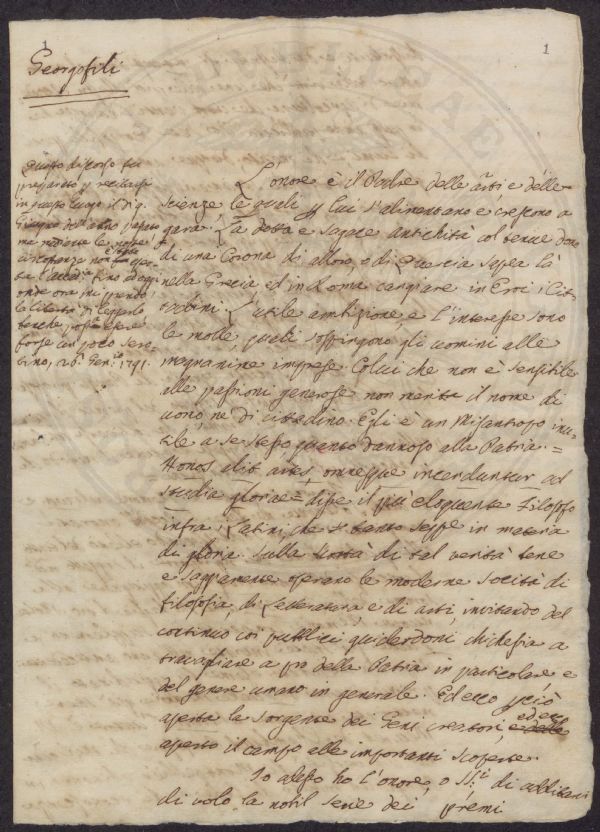 1
1
Georgofili
Questo discorso fu
preparato p recitarsi
in questo luogo il dì 9.
Giugno dell'anno passato
ma mediante le note
circostanze non
ta l'Accad.ia fino ad oggi
onde ora mi prendo
la libertà di leggerlo
benchè possa essere
forse un poco
tino, 26. Gen.o 1791.
L'onore è il Padre delle arti e delle
scienze, le quali p lui s'alimentano e crescono a
gara. La dotta e sagace antichità col tenue dono
di una Corona di alloro, o di Quercia sapea là
nella Grecia ed in Roma cangiare in Eroi i Cit-
tadini. L'utile ambizione, e l'interesse sono
le molle, quali sospingono gli uomini alle
magnanime imprese. Colui che non è sensibile
alle passioni generose non merita il nome di
uomo, ne di cittadino. Egli è un Misantropo inu-
tile a se stesso quanto dannoso alla Patria. =
Honos alit artes, omnesque incenduntur ad
studia gloriae = disse il più eloquente Filosofo
infra i Latini, che tanto seppe in materia
di gloria. Sulla di tal verità bene
e saggiamente operano le moderne società di
filosofia, di Letteratura, e di arti, invitando del
continuo coi pubblici guiderdoni chichesia a
travagliare a pro della Patria in particolare e
del genere umano in generale. Ed ecco p ciò
aperta la sorgente dei Geni creatori, ed ecco
aperto il campo alle importanti scoperte.
Io adesso ho l'onore, o SS:ri di additarvi
di volo la nobil serie dei premi